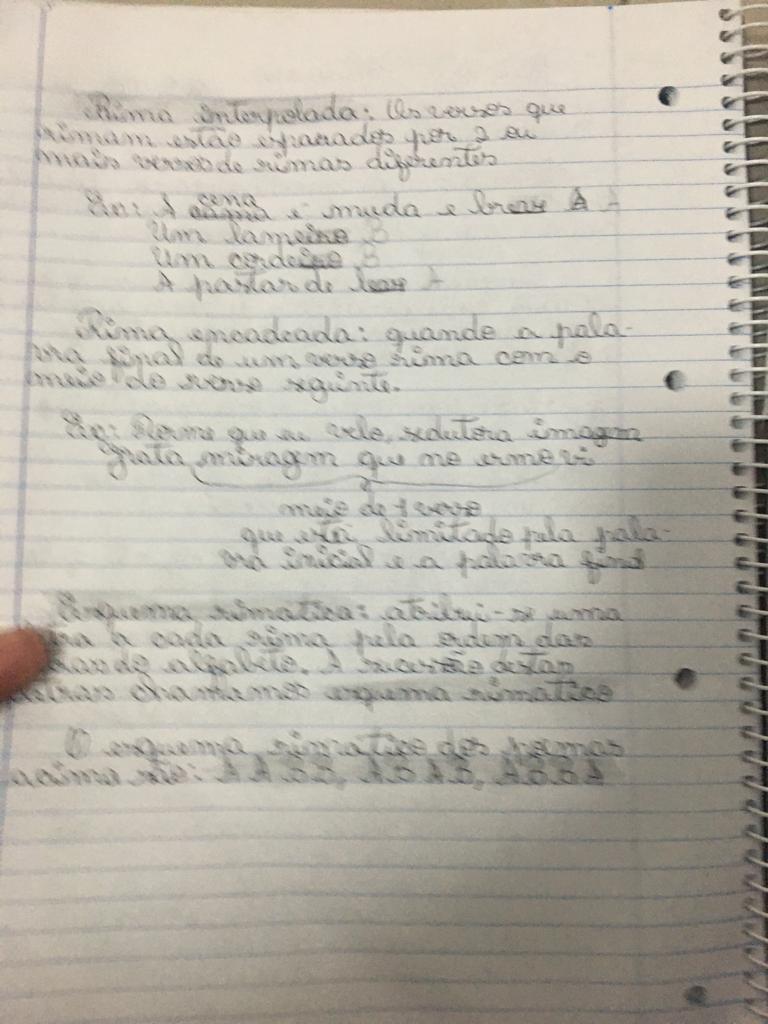 Rima interpolada: Os versos que
rimam estão espaados por 2 ou
mais versos de rimas diferentes
Ex: A cena é muda e breve A A
Um lameiro B
Um cordeiro B
A pastar de leve A
Rima encadeada: quando a pala-
vra final de um verso rima com o
meio do verso seguinte.
Ex: que eu velo, sedutora imagem
grata miragem que no ermo vi
meio de 1 verso
que está limitado pela pala-
vra inicial e a palavra final
Esquema rimatico: atribui-se uma
a cada rima pela ordem das
do alfabeto. A sucessão destas
chamamos esquema rimatico
O esquema rimatico dos poemas
acima são: A A B B, A B A B, A B B A